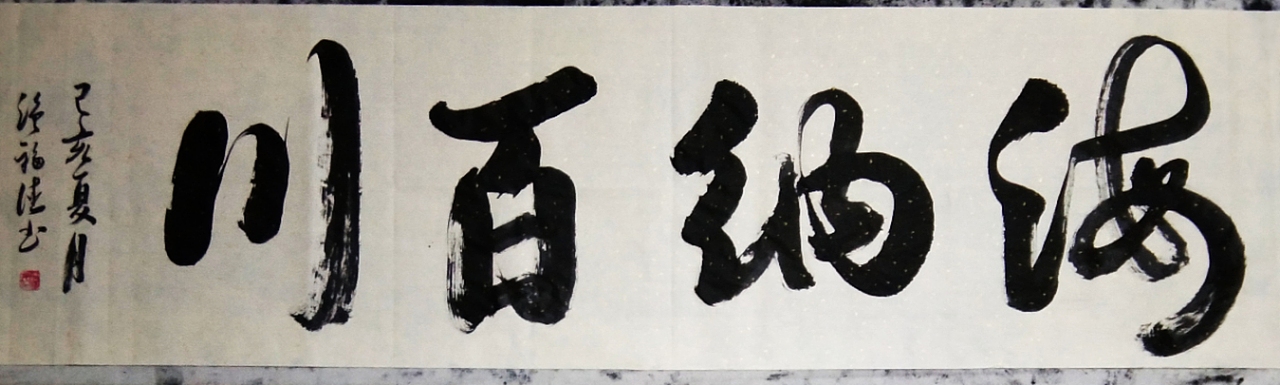 海纳百川
己亥夏月
福佳书